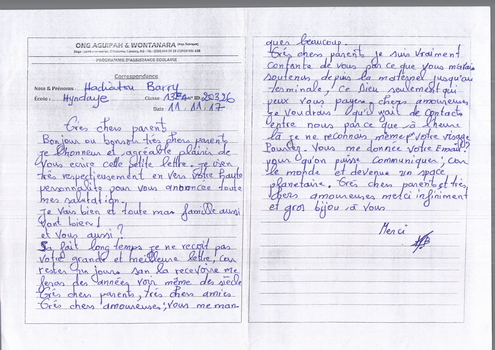 ONG AGUIPAH & WONTANARA
PROGRAMME D'ASSISTANCE SCOLAIRE
Correspondance
Nom & Prénoms : Hadiatou Barry
École : Hyndaye Classe : 13E4 N° ID: 20326
Date : 11.11.17
Très chers parents
Bonjour ou bonsoir très chers parents
je l'honneur et agréable plaisir de
vous écrire cette petite lettre. je viens
très respectueusement en vers votre haute
personnalité pour vous annoncée toute
mes salutation.
Je vais bien et toute ma famille aussi
vont bien!
et vous aussi?
Sa fait long temps je ne reçoit pas
votre grande et meilleure lettre, car
rester un jours san la recevoire me
feras des années voir même des siècle
très chers parents, très chers amies
très chers amoureuses; vous me man-
quer beaucoup.
Très chers parents je suis vraiment
contante de vous par ce que vous m'aviez
soutenus depuis la maternel jusqu'au
terminale, ce Dieu seulement qui
peux vous payers chers amoureuses
je voudrais qu'il vait de contacts
entre nous par ce que à l'heure
là je ne reconnais même votre visage
Pouvez-vous me donnée votre Email?
pour qu'on puisse communiquer; car
le monde et devenue un space
planetaire. Très chers parents et très
chers amoureuses merci infiniment
et gros bijou à vous.
Merci